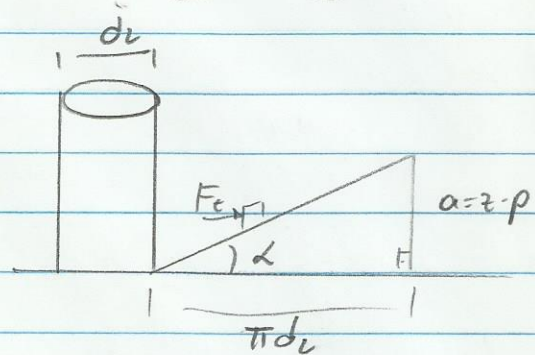 d₂
Fₜ
α
a=z·p
πd₂